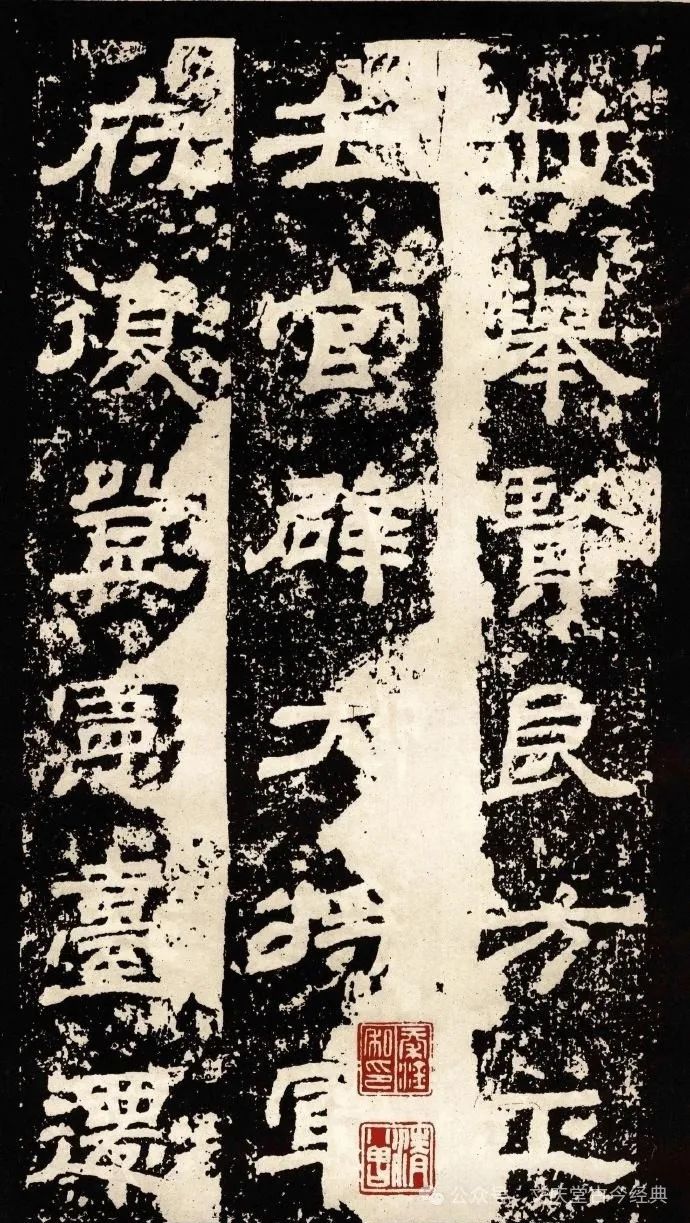 並舉賢良方正
去官辟大將軍
府復登憲臺遷
公众号 · 天堂古今经典